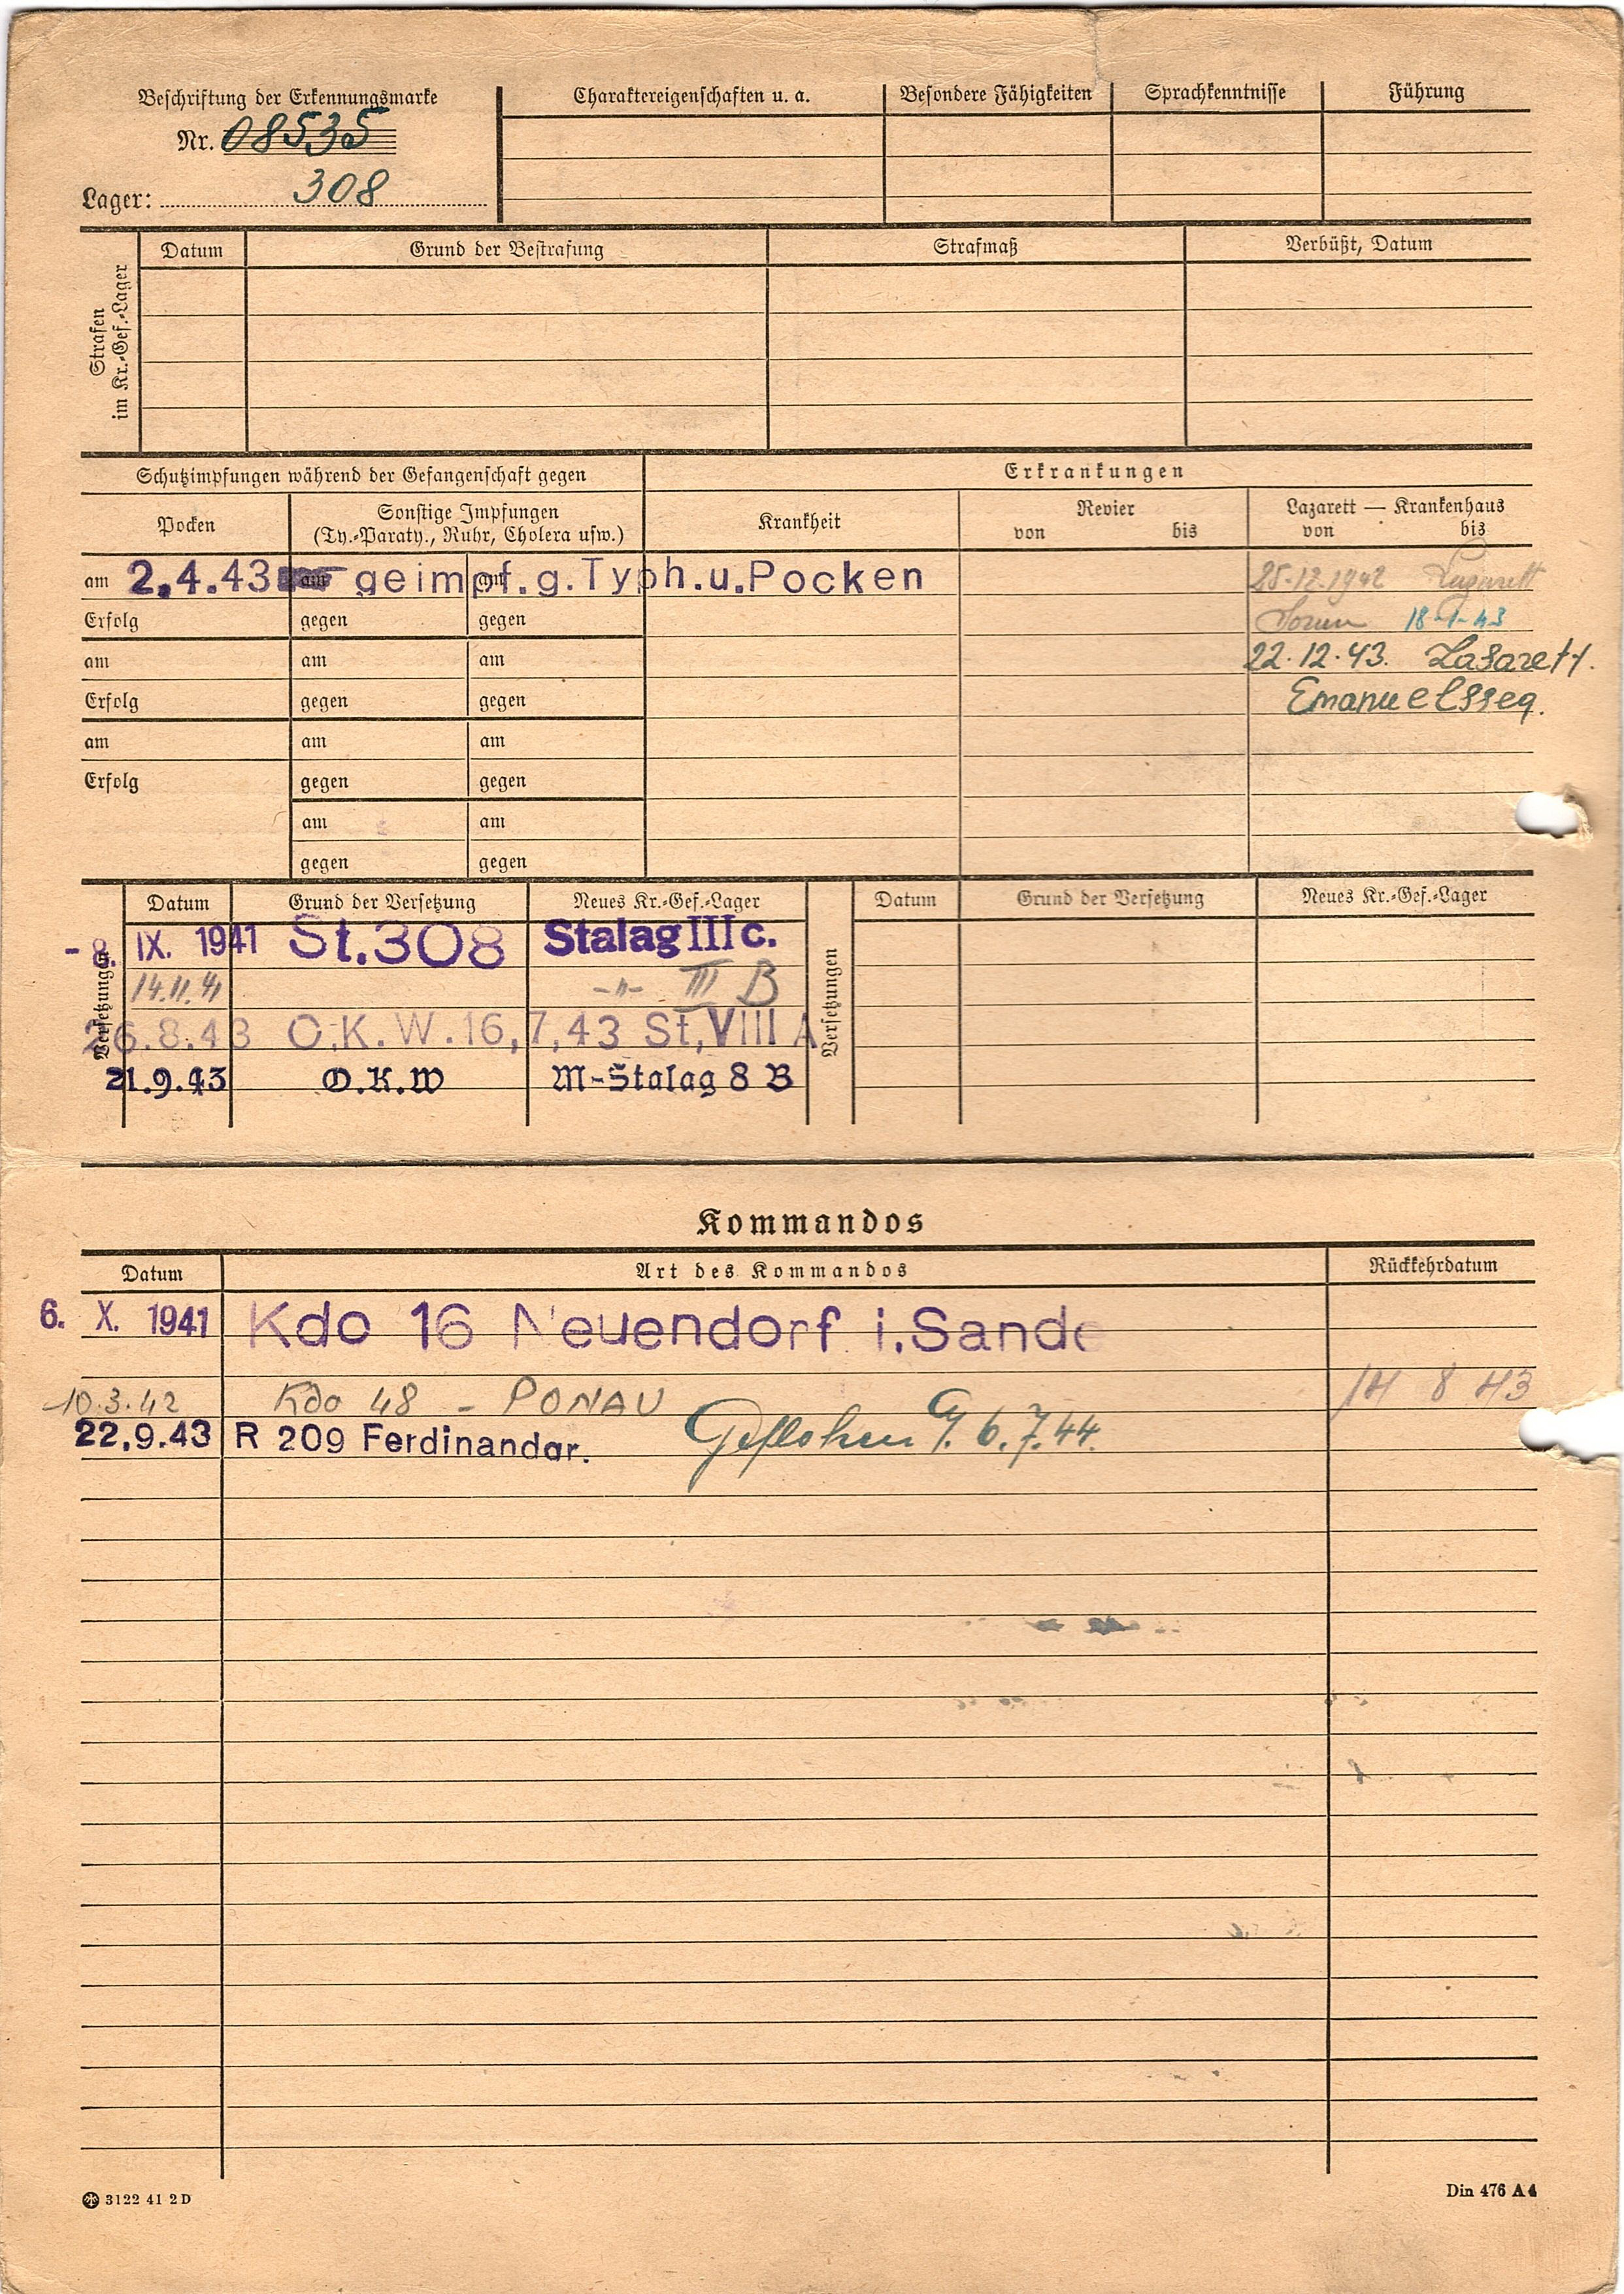 Beschriftung der Erkennungsmarke
Nr. 08535
Lager: 308
Charaktereigenschaften u. a.
Besondere Fähigkeiten
Sprachkenntnisse
Führung
Strafen im Kr.-Gef.-Lager
Datum
Grund der Bestrafung
Strafmaß
Verbüßt, Datum
Schutzimpfungen während der Gefangenschaft gegen
Erkrankungen
Pocken
Sonstige Impfungen
(Ty.-Paraty., Ruhr, Cholera usw.)
Krankheit
Revier
von bis
Lazarett — Krankenhaus
von bis
am 2.4.43 am geimpf.g.Typh.u.Pocken am
25.12.1942 Lazarett
Erfolg gegen gegen
18.1.43
am am am
22.12.43. Lasarett.
Erfolg gegen gegen
Emanuelsseg.
am am am
Erfolg gegen gegen
am am
gegen gegen
Versetzungen
Datum Grund der Versetzung Neues Kr.-Gef.-Lager
- 8. IX. 1941 St.308 Stalag III c.
14.11.41 -"- III B
26.8.43 O.K.W.16,7,43 St,VIII A
21.9.43 O.K.W M-Stalag 8 B
Versetzungen
Datum Grund der Versetzung Neues Kr.-Gef.-Lager
Kommandos
Datum Art des Kommandos Rückkehrdatum
6. X. 1941 Kdo 16 Neuendorf i.Sande
10.3.42 Kdo 48 - PONAU 14 8 43
22.9.43 R 209 Ferdinandgr. Geflohen 6.7.44.
3122 41 2 D
Din 476 A 4